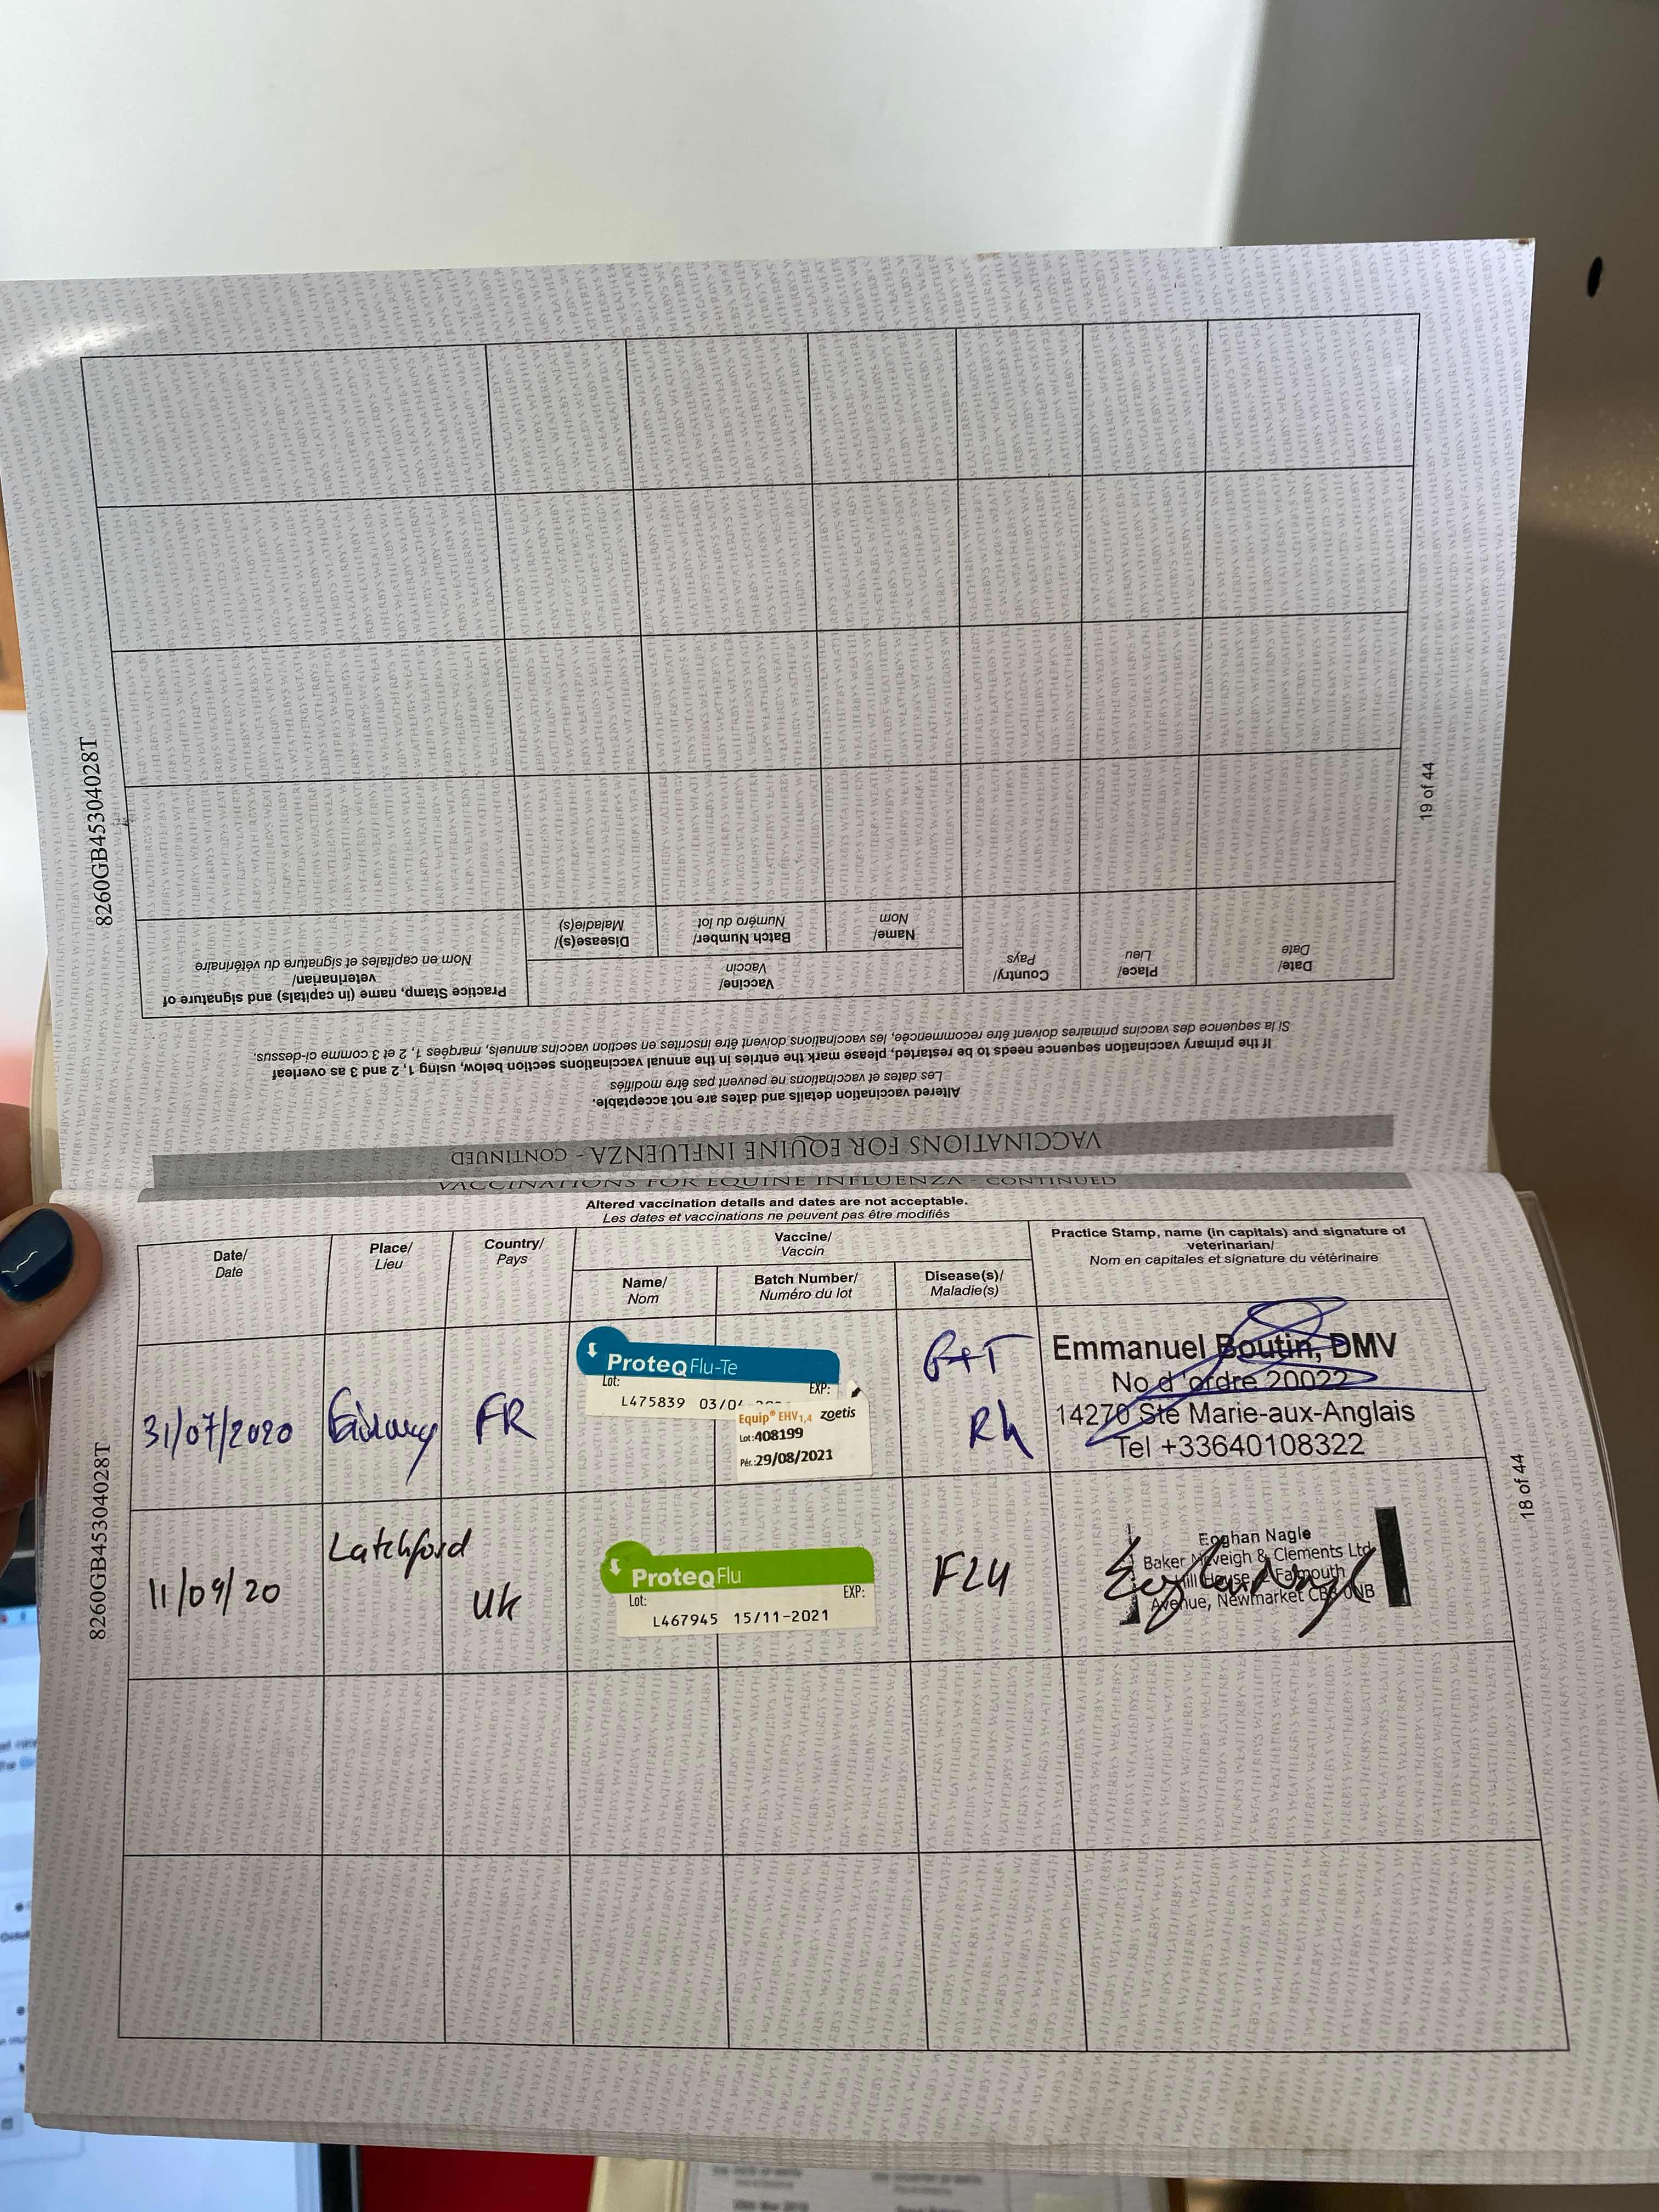 8260GB45304028T
19 of 44
VACCINATIONS FOR EQUINE INFLUENZA - CONTINUED
Altered vaccination details and dates are not acceptable.
Les dates et vaccinations ne peuvent pas être modifiés
If the primary vaccination sequence needs to be restarted, please mark the entries in the annual vaccinations section below, using 1, 2 and 3 as overleaf
Si la sequence des vaccins primaires doivent être recommencée, les vaccinations doivent être inscrites en section vaccins annuels, marquées 1, 2 et 3 comme ci-dessus.
Date/
Date
Place/
Lieu
Country/
Pays
Vaccine/
Vaccin
Name/
Nom
Batch Number/
Numéro du lot
Disease(s)/
Maladie(s)
Practice Stamp, name (in capitals) and signature of
veterinarian/
Nom en capitales et signature du vétérinaire
VACCINATIONS FOR EQUINE INFLUENZA - CONTINUED
Altered vaccination details and dates are not acceptable.
Les dates et vaccinations ne peuvent pas être modifiés
Date/
Date
Place/
Lieu
Country/
Pays
Vaccine/
Vaccin
Name/
Nom
Batch Number/
Numéro du lot
Disease(s)/
Maladie(s)
Practice Stamp, name (in capitals) and signature of
veterinarian/
Nom en capitales et signature du vétérinaire
31/07/2020
FR
ProteqFlu-Te
Lot: EXP:
L475839
Equip® EHV1,4 zoetis
Lot:408199
Pér.:29/08/2021
G+T
Rh
Emmanuel Boutin, DMV
No d'ordre 20022
14270 Ste Marie-aux-Anglais
Tel +33640108322
11/09/20
Latchford
UK
ProteqFlu
Lot: EXP:
L467945 15/11-2021
FLU
Eoghan Nagle
Baker McVeigh & Clements Ltd
Hill House, Falmouth
Avenue, Newmarket CB8 0NB
8260GB45304028T
18 of 44